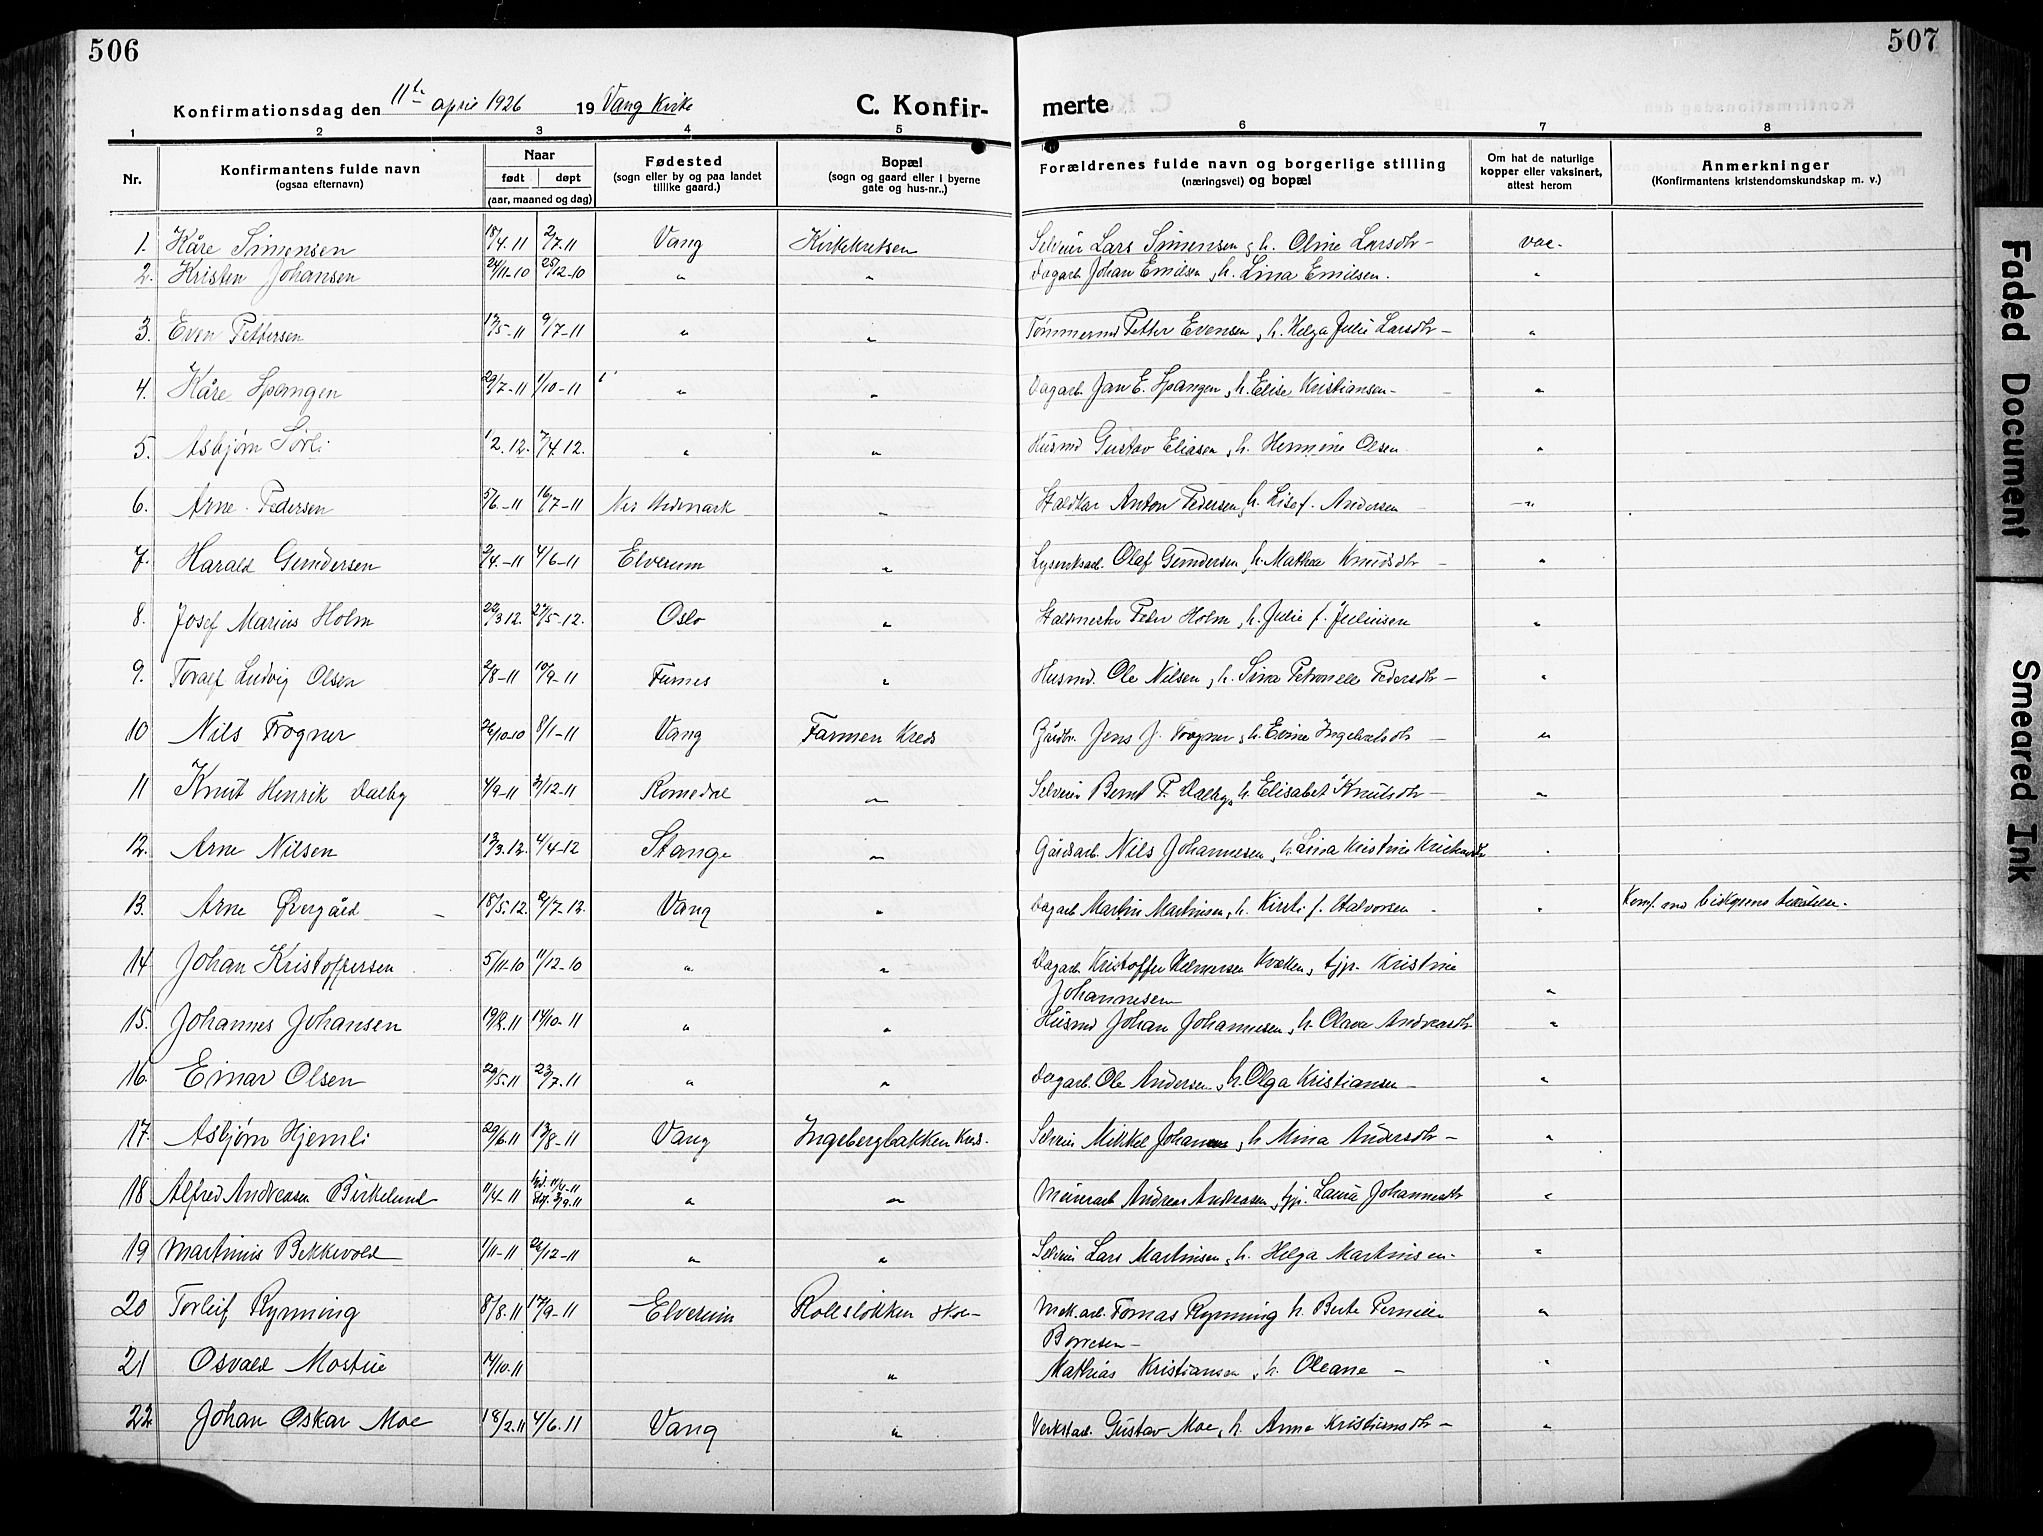 506
507
Konfirmationsdag den 11te april 1926 19 Vang Kirke
C. Konfir-
merte
1 2 3 4 5 6 7 8
Nr.
Konfirmantens fulde navn
(ogsaa efternavn)
Naar
født døpt
(aar, maaned og dag)
Fødested
(sogn eller by og paa landet
tillike gaard.)
Bopæl
(sogn og gaard eller i byerne
gate og hus-nr..)
Forældrenes fulde navn og borgerlige stilling
(næringsvei) og bopæl
Om hat de naturlige
kopper eller vaksinert,
attest herom
Anmerkninger
(Konfirmantens kristendomskundskap m. v.)
1. Kåre Simensen 18/4.11 2/7.11 Vang Kirkekretsen Selveier Lars Simensen, h. Oline Larsdtr - vac.
2. Kristen Johansen 24/11-10 25/12-10 " " Dagarb. Johan Emilsen, h. Lina Emilsen. "
3. Even Pettersen 17/5-11 9/7-11 " " Tømmermd Petter Evensen, h. Helga Julie Larsdtr - "
4. Kåre Spangen 29/7-11 1/10-11 " " Dagarb. Jan E. Spangen, h. Elise Kristiansen - "
5. Asbjørn Sørli 1/2.12. 7/4.12. " " Husmd Gustav Eliasen, h. Hermine Olsen "
6. Arne Pedersen 5/6-11 16/7-11 Nes Hedmark " Staldkar Anton Pedersen, h. Lise f. Andersen "
7. Harald Gundersen 2/4-11 4/6-11 Elverum " Lysverksarb. Olaf Gundersen, h. Mathea Knudsdtr - "
8. Josef Marius Holm 22/3 12. 27/5-12. Oslo " Staldmester Peder Holm, h. Julie f. Juliusen "
9. Toralf Ludvig Olsen 2/8-11 10/9-11 Furnes " Husmd. Ole Nilsen, h. Sina Petronelle Pedersdtr - "
10 Nils Frogner 26/10-10 8/1-11 Vang Farmen Kreds Gårdbr. Jens J. Frogner, h. Evine Ingebretsdtr - "
11 Knut Henrik Dalby 4/9-11 31/12-11 Romedal " Selveier Bernt P. Dalby, h. Elisabet Knutsdtr - "
12. Arne Nilsen 13/3.12. 4/4-12 Stange " Gårdsarb. Nils Johannesen, h. Lina Kristine "
13. Arne Øvergård - 18/5.12. 21/7.12. Vang " Dagarb Martin Martinsen, h. Kirsti f. Halvorsen. " Konf. med biskopens tilladelse.
14 Johan Kristoffersen 5/11-10 11/12-10 " " Dagarb. Kristoffer Helmersen Kvækken, tjp. Kristine
Johannesen "
15. Johannes Johansen 19/8.11 14/10-11 " " Husmd Johan Johannesen, h. Olava Andreasdtr "
16. Einar Olsen 29/5.11 23/7.11 " " Dagarb. Ole Andersen, h. Olga Kristiansen - "
17. Asbjørn Hjemli 29/6.11 13/8-11 Vang Ingebergbakken Kreds. Selveier Mikkel Johansen, h. Mina Andersdtr - "
18 Alfred Andreasen Birkelund 11/4-11 hjd. 11/4-11
3/9.11 " " Meieriarb Andreas Andreasen, tjp. Laura Johannesdtr "
19 Martinius Bekkevold 1/11-11 26/12-11 " " Selveier Lars Martinsen, h. Helga Martinsen. "
20 Torleif Rynning 8/8.11 17/9-11 Elverum Rollsløkken skole Mek.arb. Tomas Rynning h. Berte Pernille
Børresen - "
21 Osvald Mostue 14/10.11 " Mathias Kristiansen, h. Oleane - "
22 Johan Oskar Moe 18/2.11 4/6.11 Vang " Verkstarb. Gustav Moe, h. Anna Kristiansdtr - "
Faded Document
Smeared Ink